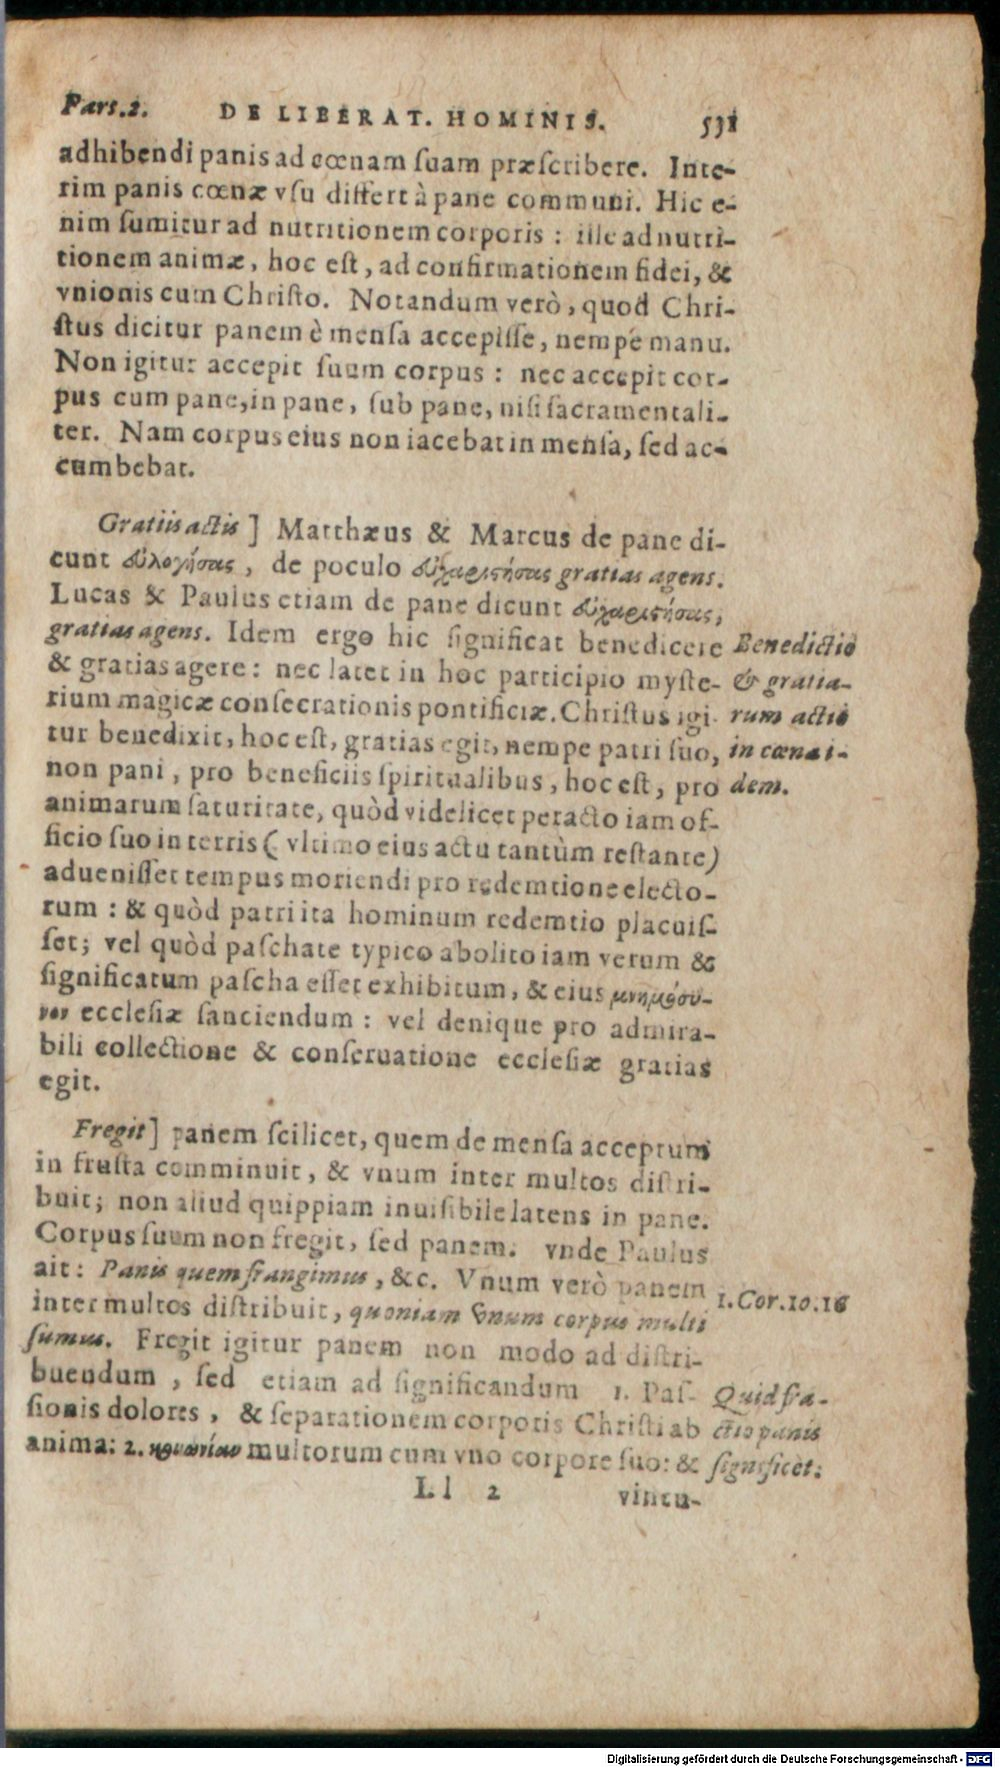 Pars.2. DE LIBERAT. HOMINIS. 531
adhibendi panis ad cœnam ſuam præſcribere. Inte-
rim panis cœnæ vſu differt à pane communi. Hic e-
nim ſumitur ad nutritionem corporis : ille ad nutri-
tionem animæ, hoc eſt, ad confirmationem fidei, &
vnionis cum Chriſto. Notandum verò, quod Chri-
ſtus dicitur panem è menſa accepiſſe, nempe manu.
Non igitur accepit ſuum corpus : nec accepit cor-
pus cum pane, in pane, ſub pane, niſi ſacramentali-
ter. Nam corpus eius non iacebat in menſa, ſed ac-
cumbebat.
Gratiis actis] Matthæus & Marcus de pane di-
cunt εὐλογήσας, de poculo εὐχαριστήσας gratias agens.
Lucas & Paulus etiam de pane dicunt εὐχαριστήσας,
gratias agens. Idem ergo hic ſignificat benedicere
& gratias agere: nec latet in hoc participio myſte-
rium magicæ conſecrationis pontificiæ. Chriſtus igi-
tur benedixit, hoc eſt, gratias egit, nempe patri ſuo,
non pani, pro beneficiis ſpiritualibus, hoc eſt, pro
animarum ſaturitate, quòd videlicet peracto iam of-
ficio ſuo in terris ( vltimo eius actu tantùm reſtante)
adueniſſet tempus moriendi pro redemtione electo-
rum : & quòd patri ita hominum redemtio placuiſ-
ſet; vel quòd paſchate typico abolito iam verum &
ſignificatum paſcha eſſet exhibitum, & eius μνημόσυ-
νον eccleſiæ ſanciendum : vel denique pro admira-
bili collectione & conſeruatione eccleſiæ gratias
egit.
Benedictio
& gratia-
rum actio
in cœna i-
dem.
Fregit] panem ſcilicet, quem de menſa acceptum
in fruſta comminuit, & vnum inter multos diſtri-
buit; non aliud quippiam inuiſibile latens in pane.
Corpus ſuum non fregit, ſed panem. vnde Paulus
ait: Panis quem frangimus, &c. Vnum verò panem
inter multos diſtribuit, quoniam vnum corpus multi
ſumus. Fregit igitur panem non modo ad diſtri-
buendum, ſed etiam ad ſignificandum 1. Paſ-
ſionis dolores, & ſeparationem corporis Chriſti ab
anima: 2. κοινωνίαν multorum cum vno corpore ſuo: &
1.Cor.10.16
Quid fra-
ctio panis
ſignificet.
Ll 2 vincu-
Digitalisierung gefördert durch die Deutsche Forschungsgemeinschaft - DFG